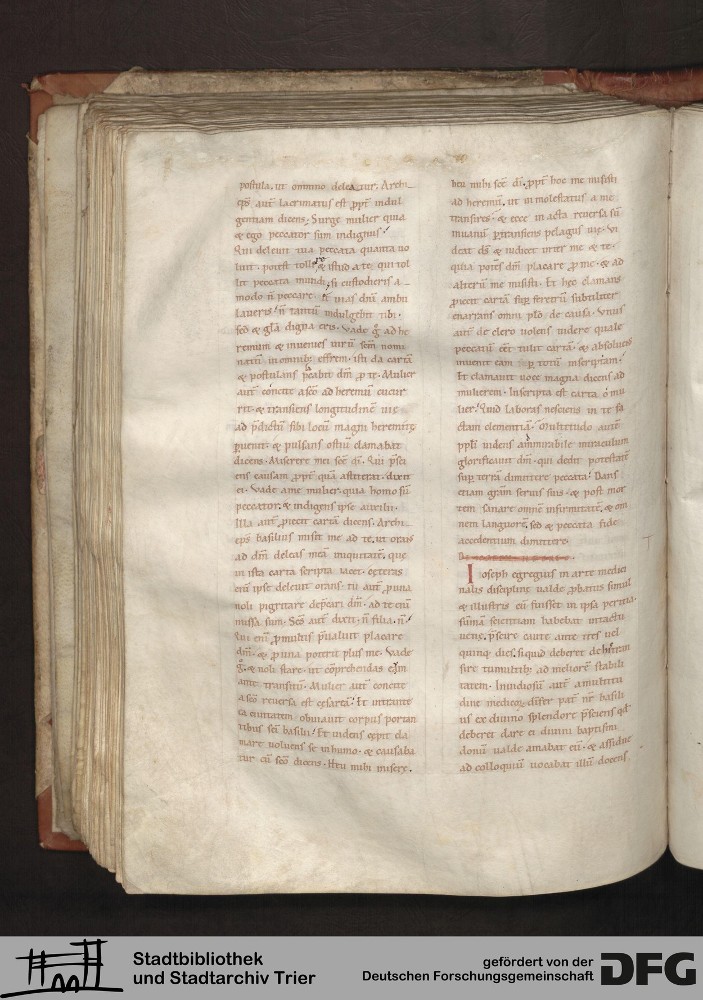 postula, ut omnino deleatur. Archi-
eps aut lacrimatus est ppt indul
gentiam dicens, Surge mulier quia
& ego peccator sum indigens.
Qui delevit tua peccata quanta vo
luit. potest tollere & istud a te. qui tol
lit peccata mundi, si custodieris a
modo n peccare. & vias dni ambu
laveris. n tantu indulgebit tibi.
sed & gla digna eris. Vade g ad he
remum & invenies viru scm nomi
natu in omnib; effrem. isti da carta
& postulans pcabit dm p te. Mulier
aut concite a sco ad heremu cucur
rit. & transiens longitudine vie
ad pdictu sibi locu magni heremite
pvenit. & pulsans ostiu clamabat
dicens. Miserere mei sce di. Qui psci
ens causam ppt qua astiterat. dixit
ei. Vade ame mulier. quia homo su
peccator. & indigens ipse auxilii.
Illa aut piecit carta dicens. Archi
eps basilius misit me ad te. ut orans
ad dm deleas mea iniquitate. que
in ista carta scripta iacet. ceteras
eni ipse delevit orans. tu aut p una
noli pigritare depcari dm. ad te eni
missa sum. Scs aut dixit. n filia. n.
Qui eni p multis pvaluit placare
dm. & p una poterit plus me. Vade
g. & noli stare. ut coprehendas eum
ante transitu. Mulier aut concite
a sco reversa est cesarea. Et intrante
ea civitatem obviavit corpus portan
tibus sci basilii. Et videns cepit cla
mare volvens se in humo. & causaba
tur cu sco dicens. Heu mihi misere.
heu mihi sce di. ppt hoc me misisti
ad heremu. ut si molestatus a me
transires. & ecce in acta reversa su
in vanu ptransiens pelagus vie. Vi
deat ds & iudicet inter me & te.
quia potens dm placare p me. & ad
alteru me misisti. Et hec clamans
piecit carta sup feretru subtiliter
enarrans omni plo de causa. Unus
aut de clero volens videre quale
peccatu eet. tulit carta. & absolvens
invenit eam p totu inscriptam.
Et clamavit voce magna dicens ad
mulierem. Inscripta est carta o mu
lier. Quid laboras nesciens in te fa
ctam clementia. Multitudo aut
ppli videns ammirabile miraculum
glorificavit dm. qui dedit potestate
sup terra dimittere peccata. Dans
etiam gram servis suis. & post mor
tem sanare omne infirmitate. & om
nem languore. sed & peccata fide
accedentium dimittere.
Ioseph egregius in arte medici
nalis discipline valde pbatus simul
& illustris cu fuisset in ipsa peritia.
suma scientiam habebat in tactu
vene. pscire cauté ante tres vel
quinq; dies. si quid deberet de huma
fire tumultib; ad meliore stabili
tatem. Invidiosu aut a multitu
dine medicoq; differ pat nr basili
us ex divino splendore psciens qd
deberet dare ei divini baptismi
donu valde amabat eu. & assidue
ad colloquiu vocabat illu docens
Stadtbibliothek
und Stadtarchiv Trier
gefördert von der
Deutschen Forschungsgemeinschaft
DFG